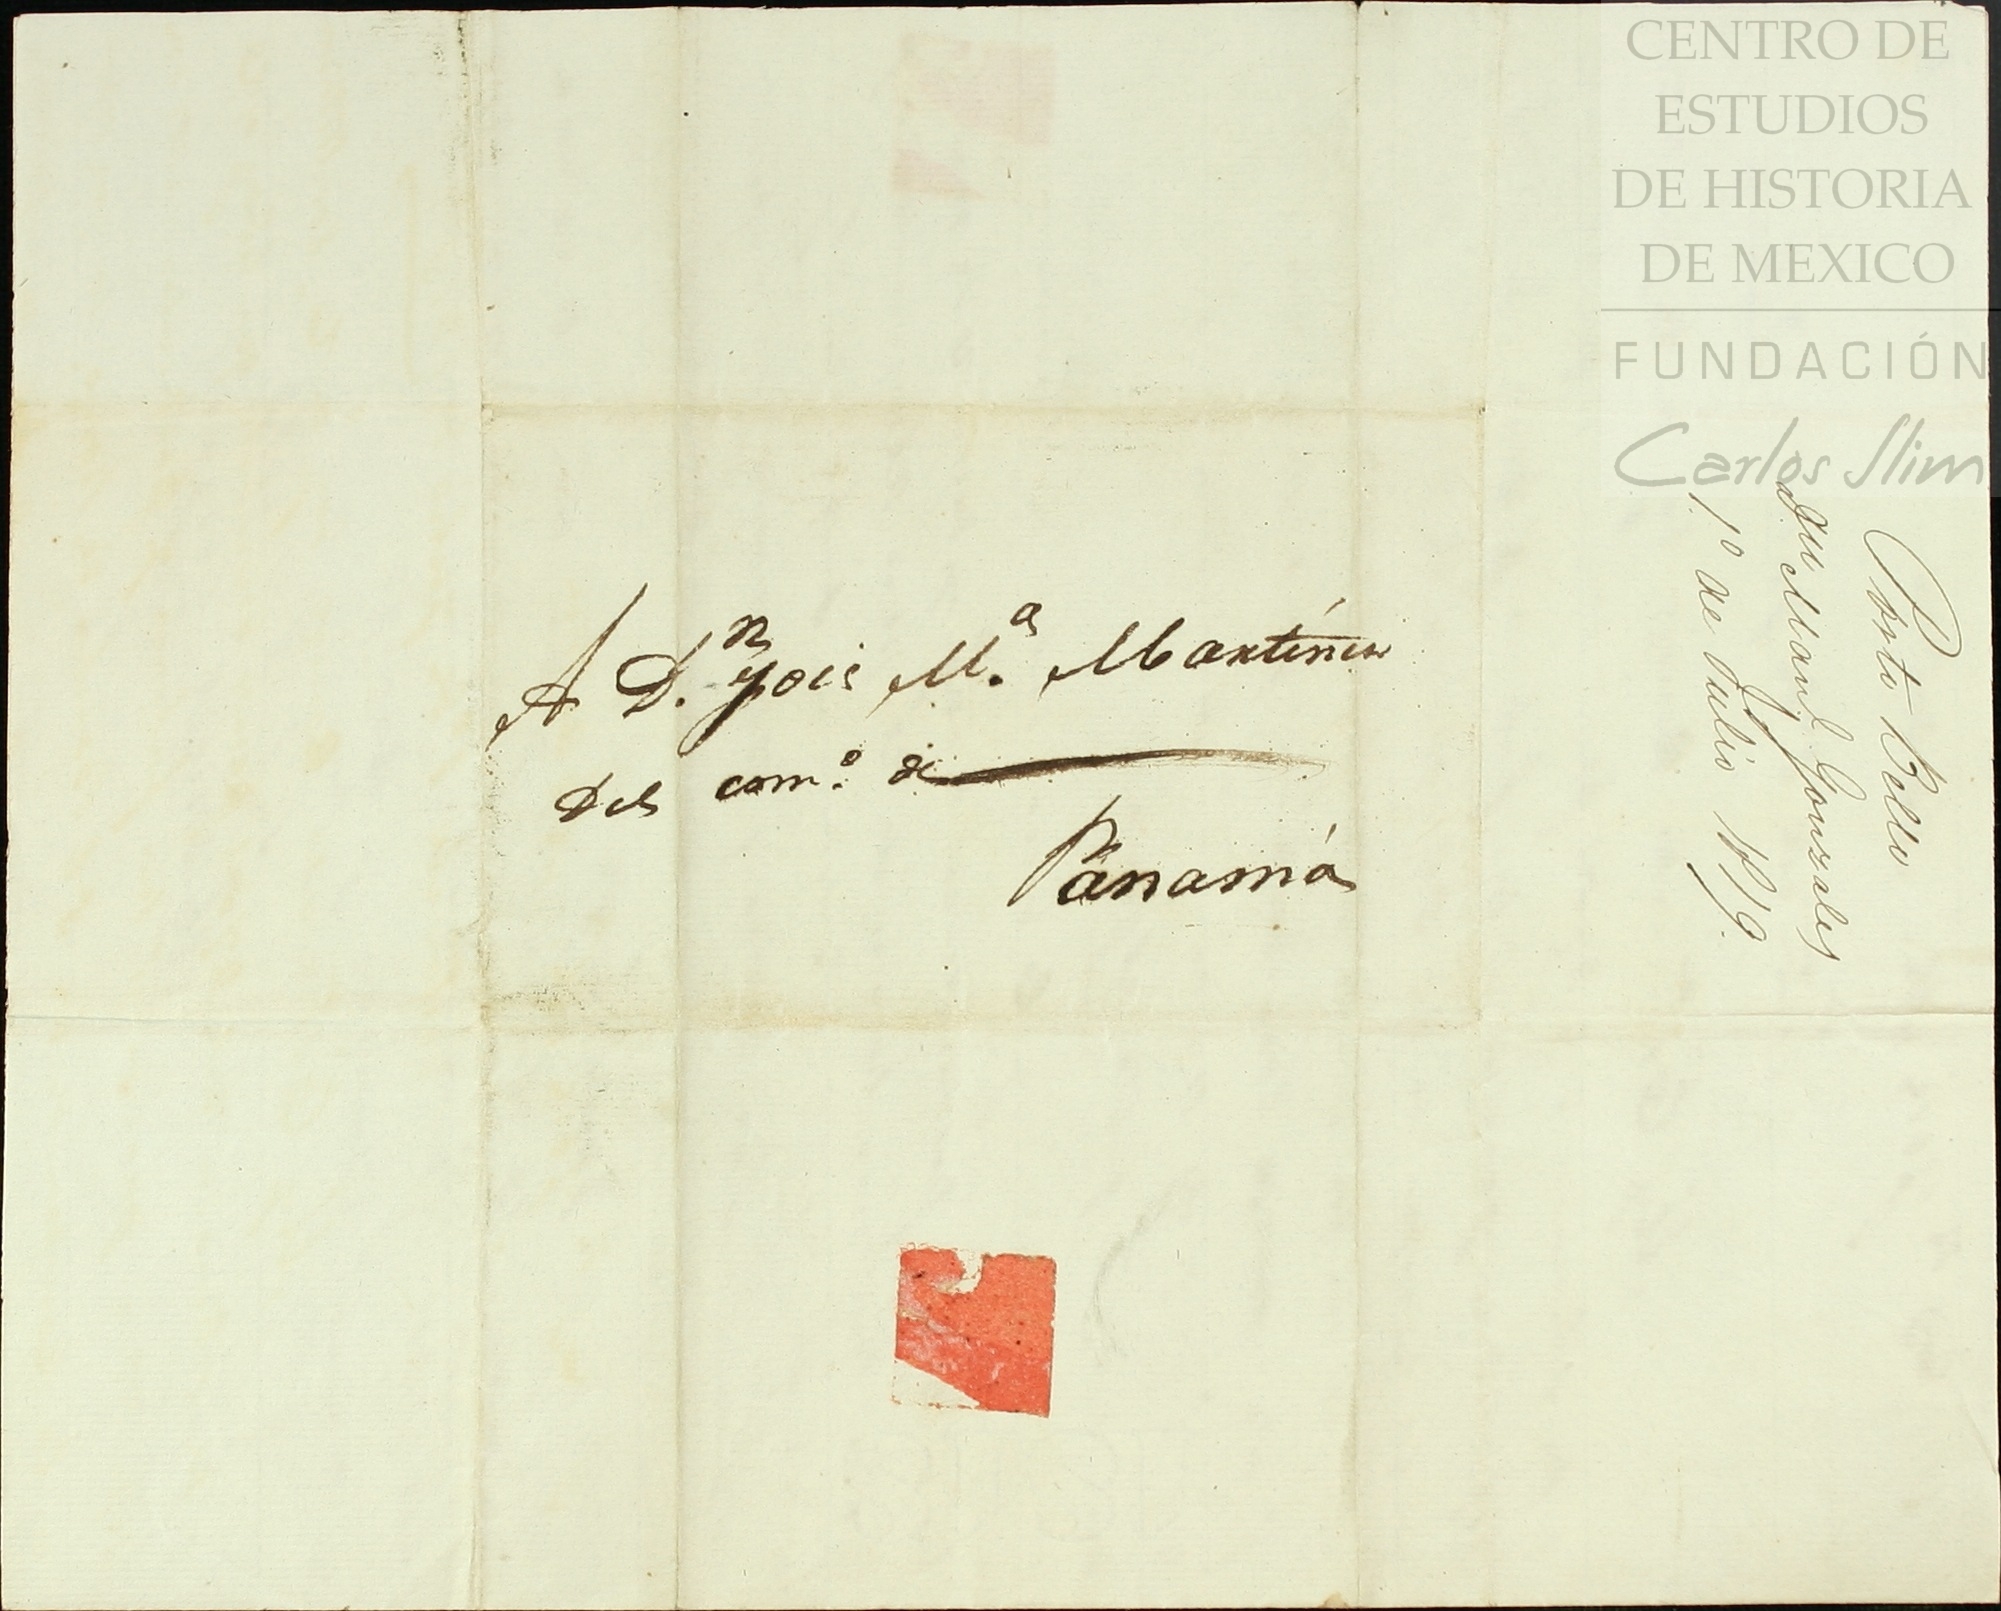 A D.n José M.a Martinez
del com.o de
Panamá
Porto Bello
Man.l Gonzales
1.o de Julio 1819.
CENTRO DE
ESTUDIOS
DE HISTORIA
DE MEXICO
FUNDACIÓN
Carlos Slim